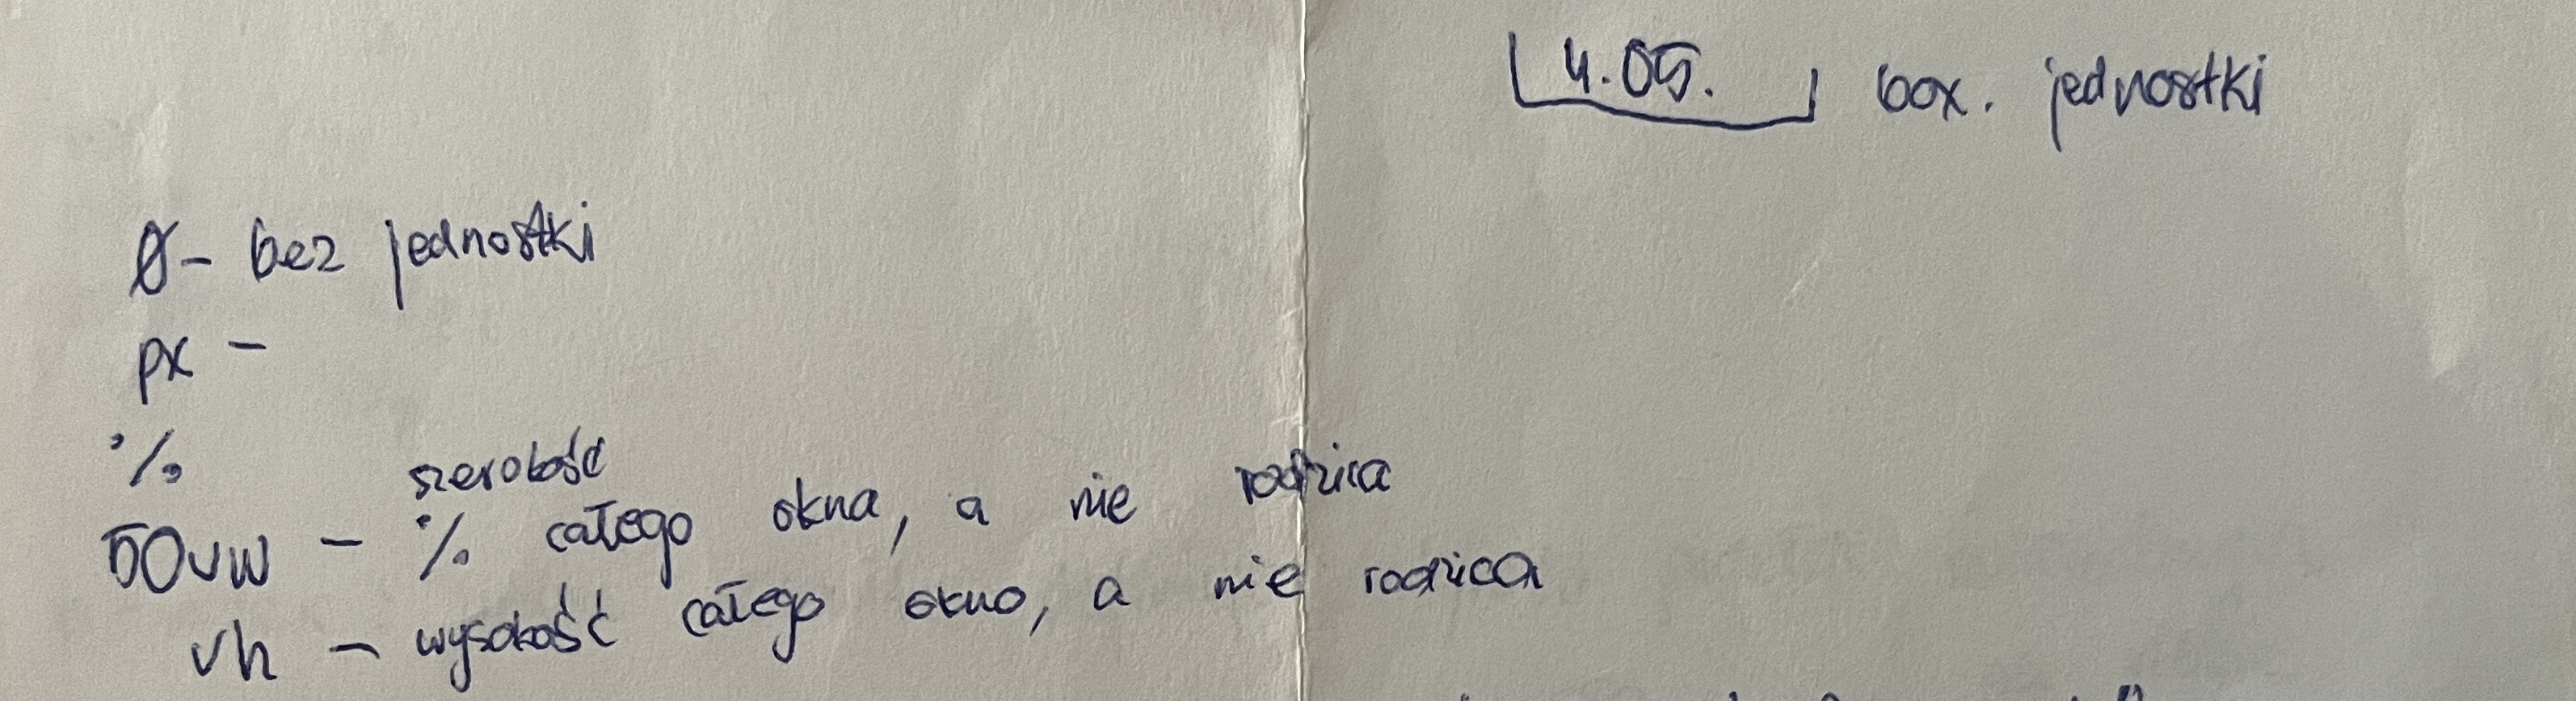 4.05. box. jednostki
Ø - bez jednostki
px -
%
szerokość
50vw - % całego okna, a nie rodzica
vh - wysokość całego okno, a nie rodzica